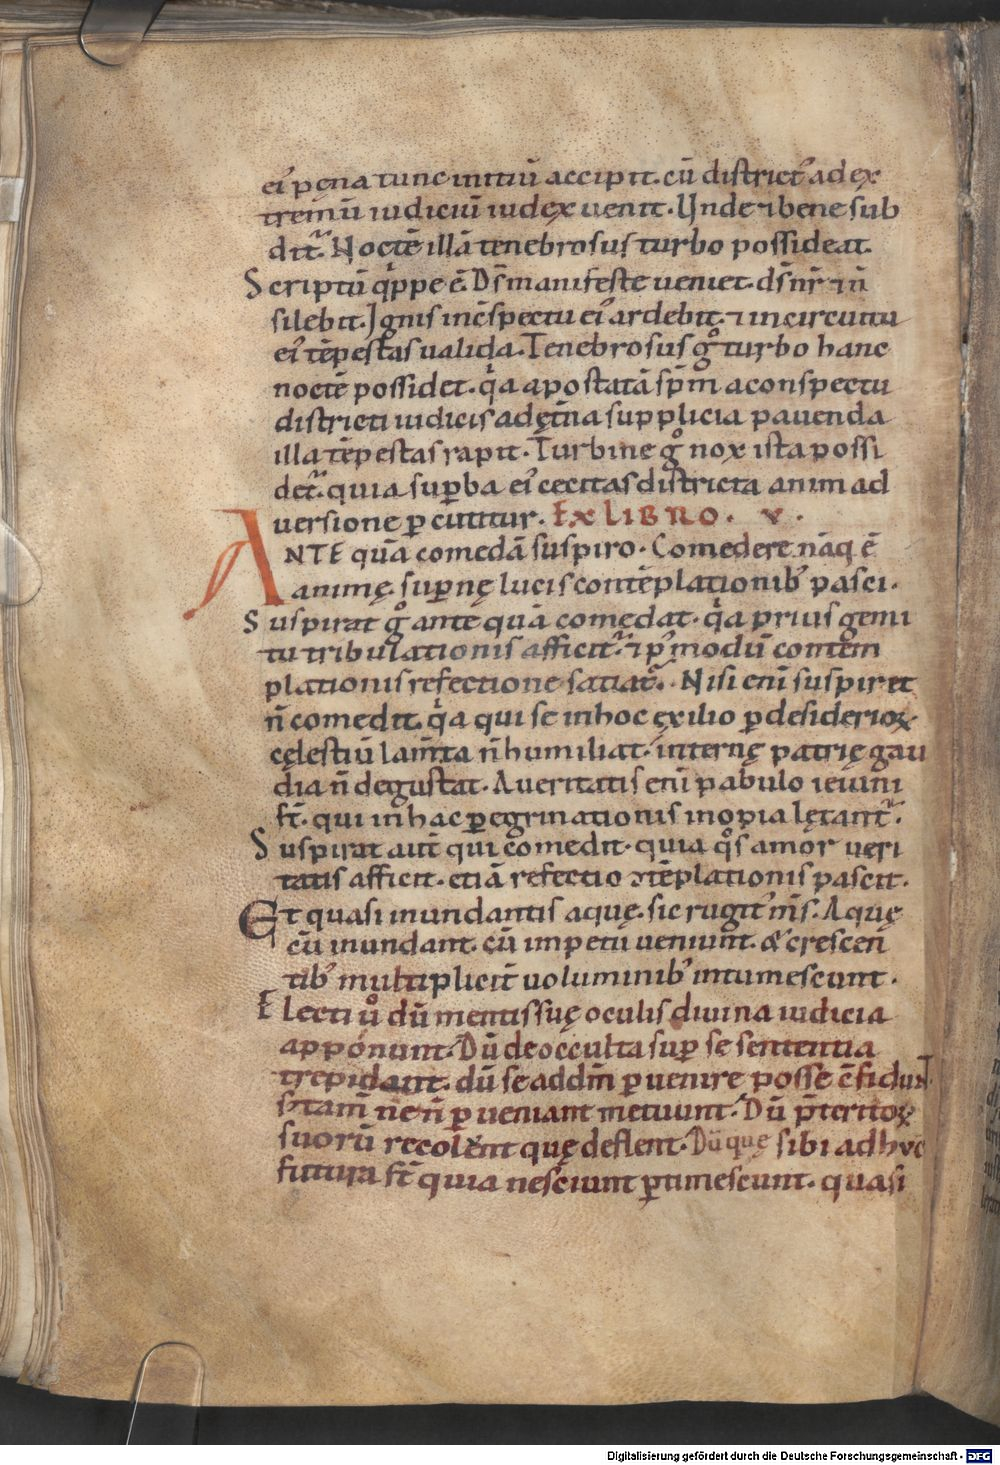 eiꝰ pęna tunc initiũ accipit. cũ districtꝰ ad ex
tremũ iudiciũ iudex uenit. Unde ⁊ bene sub
dit᷑. Noctẽ illã tenebrosus turbo possideat.
Scriptũ q̇ppe ẽ. Ds̃ manifeste ueniet. ds̃ nr̃ ⁊ ñ
silebit. Ignis in c̃spectu eiꝰ ardebit. ⁊ in circuitu
eiꝰ tẽpestas ualida. Tenebrosus gͦ turbo hanc
noctẽ possidet. q̇a apostatã sp̃m a conspectu
districti iudicis ad ęt̃na supplicia pauenda
illa tẽpestas rapit. Turbine gͦ nox ista possi
det᷑. quia suꝑba eiꝰ cecitas districta animad
uersione ꝑcutitur. EX LIBRO. V.
ANTE quã comedã suspiro. Comedere nãq ẽ
animę. suꝑnę lucis contẽplationibꝰ pasci.
Suspirat gͦ ante quã comedat. q̇a prius gemi
tu tribulationis afficit᷑. ⁊ pꝰmodũ contem
plationis refectione satiat᷑. Nisi eni̅ suspiret
ñ comedit. q̇a qui se in hoc ęxilio ꝑ desiderioꝝ
cęlestiũ lam̃ta ñ humiliat. internę patrię gau
dia ñ degustat. A ueritatis eni̅ pabulo ieiuni
st̃. qui in hac ꝑegrinationis inopia lętant᷑.
Suspirat aut̃ qui comedit. quia qͦs amor ueri
tatis afficit. etiã refectio ↄtẽplationis pascit.
Et quasi inundantis aquę. sic rugitꝰ mꝰs. Aquę
cũ inundant. cũ impetu ueniunt. & crescen
tibꝰ multiplicit̃ uoluminibꝰ intumescunt.
Electi uͦ dũ mentis suę oculis diuina iudicia
apponunt. Dũ de occulta suꝑ se sententia
trepidant. dũ se ad dm̃ ꝑuenire posse c̃fidunt
s; tam̃ ne ñ ꝑueniant metuunt. Dũ p̃teritoꝝ
suorũ recolent quę deflent. Dũ quę sibi adhuc
futura st̃ quia nesciunt ꝑtimescunt. quasi
Digitalisierung gefördert durch die Deutsche Forschungsgemeinschaft - DFG